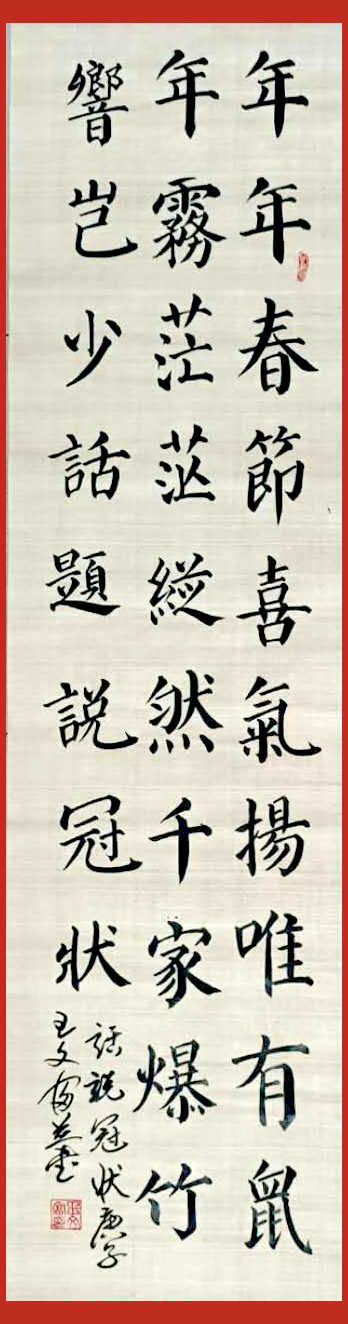 年年春節喜氣揚唯有鼠
年霧茫茫縱然千家爆竹
響豈少話題説冠狀
話説冠狀庚子
王文富並書